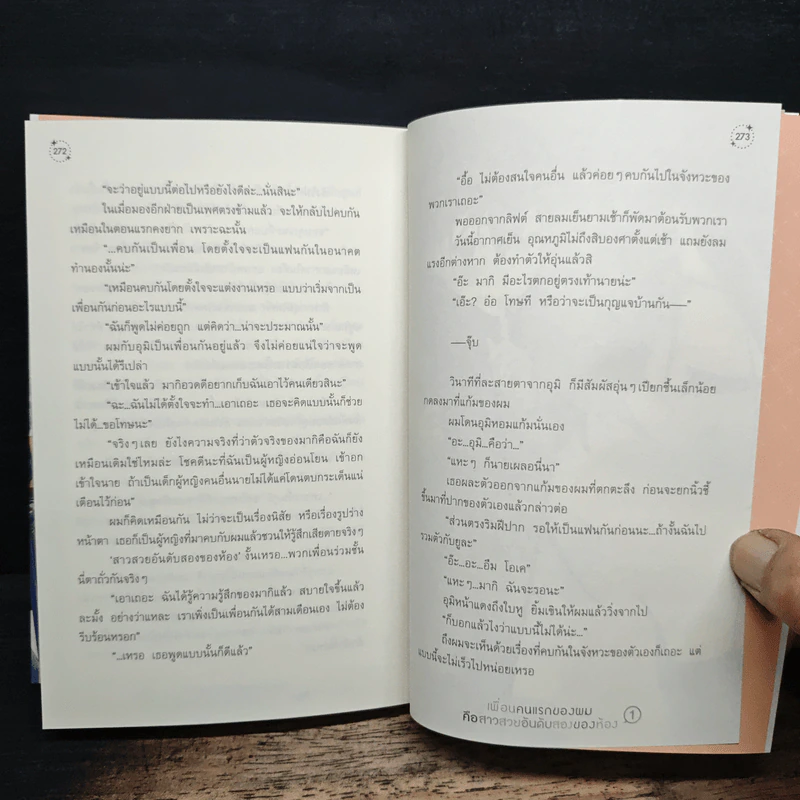 272
"จะว่าอยู่แบบนี้ต่อไปหรือยังไงดีล่ะ...นั่นสินะ"
ในเมื่อมองอีกฝ่ายเป็นเพศตรงข้ามแล้ว จะให้กลับไปคบกัน
เหมือนในตอนแรกคงยาก เพราะฉะนั้น
"...คบกันเป็นเพื่อน โดยตั้งใจจะเป็นแฟนกันในอนาคต
ทำนองนั้นน่ะ"
"เหมือนคบกันโดยตั้งใจจะแต่งงานเหรอ แบบว่าเริ่มจากเป็น
เพื่อนกันก่อนอะไรแบบนี้"
"ฉันก็พูดไม่ค่อยถูก แต่คิดว่า...น่าจะประมาณนั้น"
ผมกับอุมิเป็นเพื่อนกันอยู่แล้ว จึงไม่ค่อยแน่ใจว่าจะพูด
แบบนั้นได้รึเปล่า
"เข้าใจแล้ว มากิอวดดีอยากเก็บฉันเอาไว้คนเดียวสินะ"
"ฉะ...ฉันไม่ได้ตั้งใจจะทำ...เอาเถอะ เธอจะคิดแบบนั้นก็ช่วย
ไม่ได้...ขอโทษนะ"
"จริงๆ เลย ยังไงความจริงที่ว่าตัวจริงของมากิคือฉันก็ยัง
เหมือนเดิมใช่ไหมล่ะ โชคดีนะที่ฉันเป็นผู้หญิงอ่อนโยน เข้าอก
เข้าใจนาย ถ้าเป็นเด็กผู้หญิงคนอื่นนายไม่ได้แค่โดนตบกระเด็นแน่
เตือนไว้ก่อน"
ผมก็คิดเหมือนกัน ไม่ว่าจะเป็นเรื่องนิสัย หรือเรื่องรูปร่าง
หน้าตา เธอก็เป็นผู้หญิงที่มาคบกับผมแล้วชวนให้รู้สึกเสียดายจริงๆ
'สาวสวยอันดับสองของห้อง' งั้นเหรอ...พวกเพื่อนร่วมชั้น
นี่ตาถั่วกันจริงๆ
"เอาเถอะ ฉันได้รู้ความรู้สึกของมากิแล้ว สบายใจขึ้นแล้ว
ละมั้ง อย่างว่าแหละ เราเพิ่งเป็นเพื่อนกันได้สามเดือนเอง ไม่ต้อง
รีบร้อนหรอก"
"...เหรอ เธอพูดแบบนั้นก็ดีแล้ว"
273
"อื้อ ไม่ต้องสนใจคนอื่น แล้วค่อยๆ คบกันไปในจังหวะของ
พวกเราเถอะ"
พอออกจากลิฟต์ สายลมเย็นยามเช้าก็พัดมาต้อนรับพวกเรา
วันนี้อากาศเย็น อุณหภูมิไม่ถึงสิบองศาตั้งแต่เช้า แถมยังลม
แรงอีกต่างหาก ต้องทำตัวให้อุ่นแล้วสิ
"อ๊ะ มากิ มีอะไรตกอยู่ตรงเท้านายน่ะ"
"เอ๊ะ? อ๋อ โทษที หรือว่าจะเป็นกุญแจบ้านกัน—"
—จุ๊บ
วินาทีที่ละสายตาจากอุมิ ก็มีสัมผัสอุ่นๆ เปียกชื้นเล็กน้อย
กดลงมาที่แก้มของผม
ผมโดนอุมิหอมแก้มนั่นเอง
"อะ...อุมิ...คือว่า..."
"แหะๆ ก็นายเผลอนี่นา"
เธอผละตัวออกจากแก้มของผมที่ตกตะลึง ก่อนจะยกนิ้วชี้
ขึ้นมาที่ปากของตัวเองแล้วกล่าวต่อ
"ส่วนตรงริมฝีปาก รอให้เป็นแฟนกันก่อนนะ...ถ้างั้นฉันไป
รวมตัวกับยูละ"
"อ๊ะ...อะ...อืม โอเค"
"แหะๆ...มากิ ฉันจะรอนะ"
อุมิหน้าแดงถึงใบหู ยิ้มเขินให้ผมแล้ววิ่งจากไป
"ก็บอกแล้วไงว่าแบบนี้ไม่ได้น่ะ..."
ถึงผมจะเห็นด้วยเรื่องที่คบกันในจังหวะของตัวเองก็เถอะ แต่
แบบนี้จะไม่เร็วไปหน่อยเหรอ
เพื่อนคนแรกของผม
คือสาวสวยอันดับสองของห้อง 1